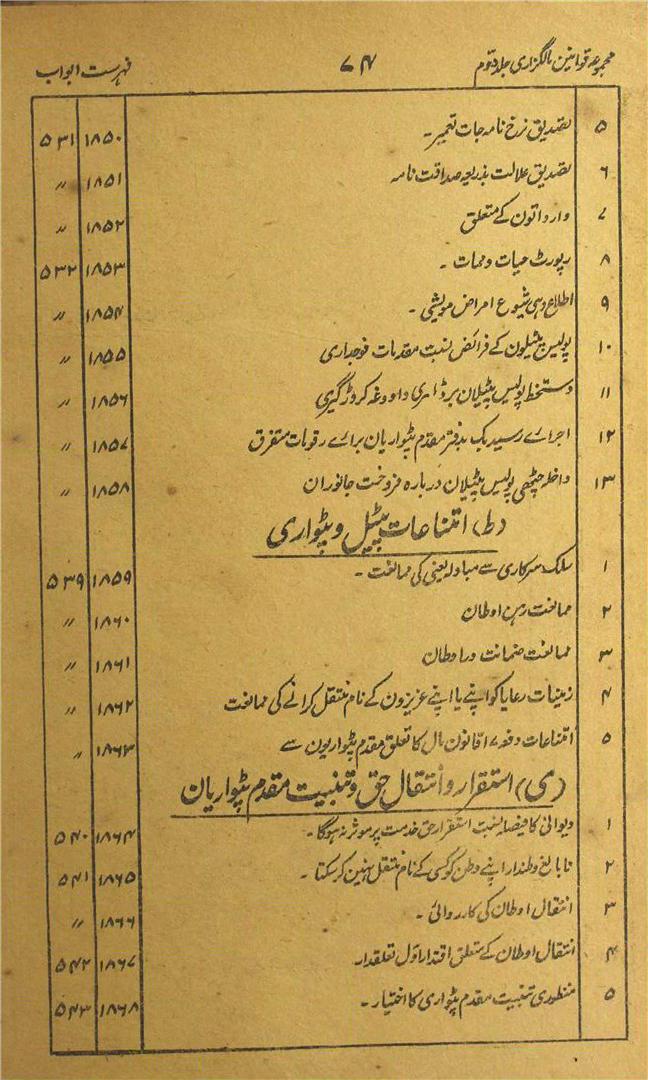 مجموعہ قوانین مالگزاری جلد دوم ۷۴ فہرست ابواب
۵ تصدیق نرخ نامہ جات تعمیر۔ ۱۸۵۰ ۵۳۱
۶ تصدیق علالت بذریعہ صداقت نامہ ۱۸۵۱ 〃
۷ وارداتون کے متعلق ۱۸۵۲ 〃
۸ رپورٹ حیات و ممات ۔ ۱۸۵۳ ۵۳۲
۹ اطلاع دہی شیوع امراض مویشی ۔ ۱۸۵۴ 〃
۱۰ پولیس پٹیلون کے فرائض نسبت مقدمات فوجداری ۱۸۵۵ 〃
۱۱ دستخط پولیس پٹیلان بر ڈائری داروغہ کروڑگیری ۱۸۵۶ 〃
۱۲ اجراے رسید بک بدفتر مقدم پٹواریان براے رقومات متفرق ۱۸۵۷ 〃
۱۳ داخلہ چٹھی پولیس پٹیلان دربارہ فروخت جانوران ۱۸۵۸ 〃
(ط) امتناعات پٹیل و پٹواری
۱ سلک سرکاری سے مبادلہ یعنی کی ممانعت ۔ ۱۸۵۹ ۵۳۹
۲ ممانعت رہن اوطان ۱۸۶۰ 〃
۳ ممانعت ضمانت در اوطان ۱۸۶۱ 〃
۴ زمینات رعایا کو اپنے یا اپنے عزیزون کے نام منتقل کرانے کی ممانعت ۱۸۶۲ 〃
۵ امتناعات دفعہ ۷ا قانون مال کا تعلق مقدم پٹواریون سے ۱۸۶۳ 〃
(ی) استقرار و انتقال حق و تبنیت مقدم پٹواریان
۱ دیوانی کا فیصلہ نسبت استقرار حق خدمت پر موثر نہ ہوگا۔ ۱۸۶۴ ۵۴۰
۲ نابالغ وطندار اپنے وطن کو کسی کے نام منتقل نہین کرسکتا ۔ ۱۸۶۵ ۵۴۱
۳ انتقال اوطان کی کارروائی ۔ ۱۸۶۶ 〃
۴ انتقال اوطان کے متعلق اقتدار اول تعلقدار ۱۸۶۷ ۵۴۲
۵ منظوری تبنیت مقدم پٹواری کا اختیار ۔ ۱۸۶۸ ۵۴۳